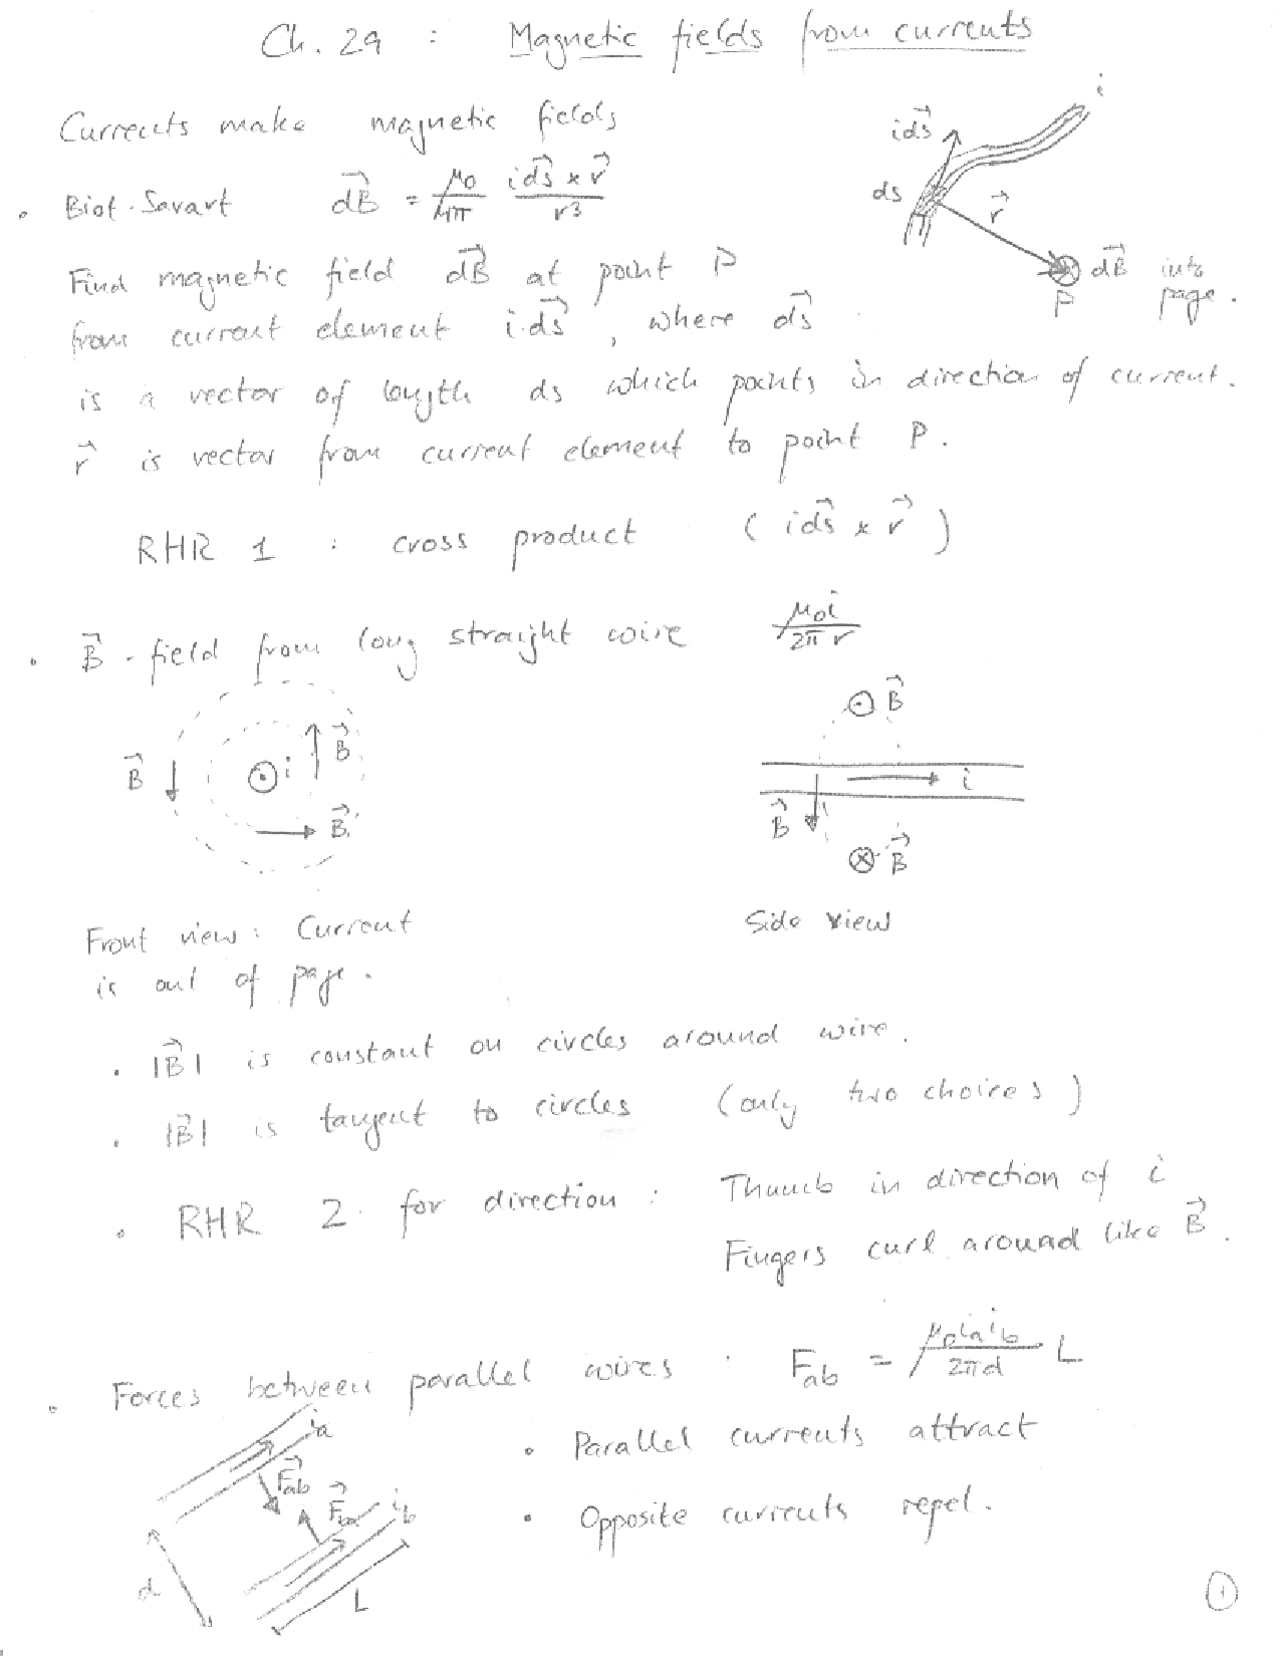 Ch. 29 : Magnetic fields from currents
Currents make magnetic fields
• Biot-Savart dB⃗ = μ0/4π i ds⃗ × r⃗ / r³
i
i ds⃗
ds
r⃗
P
dB⃗ into page.
Find magnetic field dB⃗ at point P
from current element i.ds⃗, where ds⃗
is a vector of length ds which points in direction of current.
r⃗ is vector from current element to point P.
RHR 1 : cross product (i ds⃗ × r⃗)
• B⃗-field from long straight wire μ0i/2πr
B⃗ i B⃗
B⃗
B⃗
i
B⃗
B⃗
Front view: Current
is out of page.
Side view
• |B⃗| is constant on circles around wire.
• |B⃗| is tangent to circles (only two choices)
• RHR 2 for direction : Thumb in direction of i
Fingers curl around like B⃗.
• Forces between parallel wires : Fab = μ0iaib/2πd L
ia
F⃗ab
F⃗ba
ib
d
L
• Parallel currents attract
• Opposite currents repel.
1